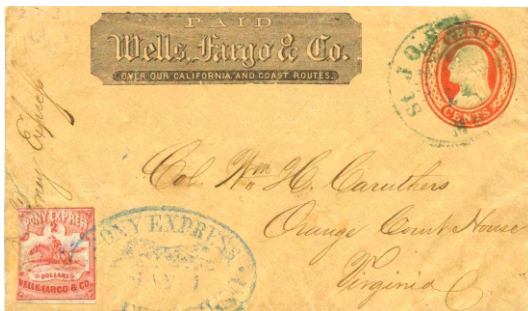 PAID
Wells, Fargo & Co.
OVER OUR CALIFORNIA AND COAST ROUTES.
THREE
CENTS
St JOS
M
Pony Express
Col. Wm H. Caruthers
Orange Court House
Virginia
PONY EXPRESS
2
DOLLARS
WELLS, FARGO & CO.
PONY EXPRESS